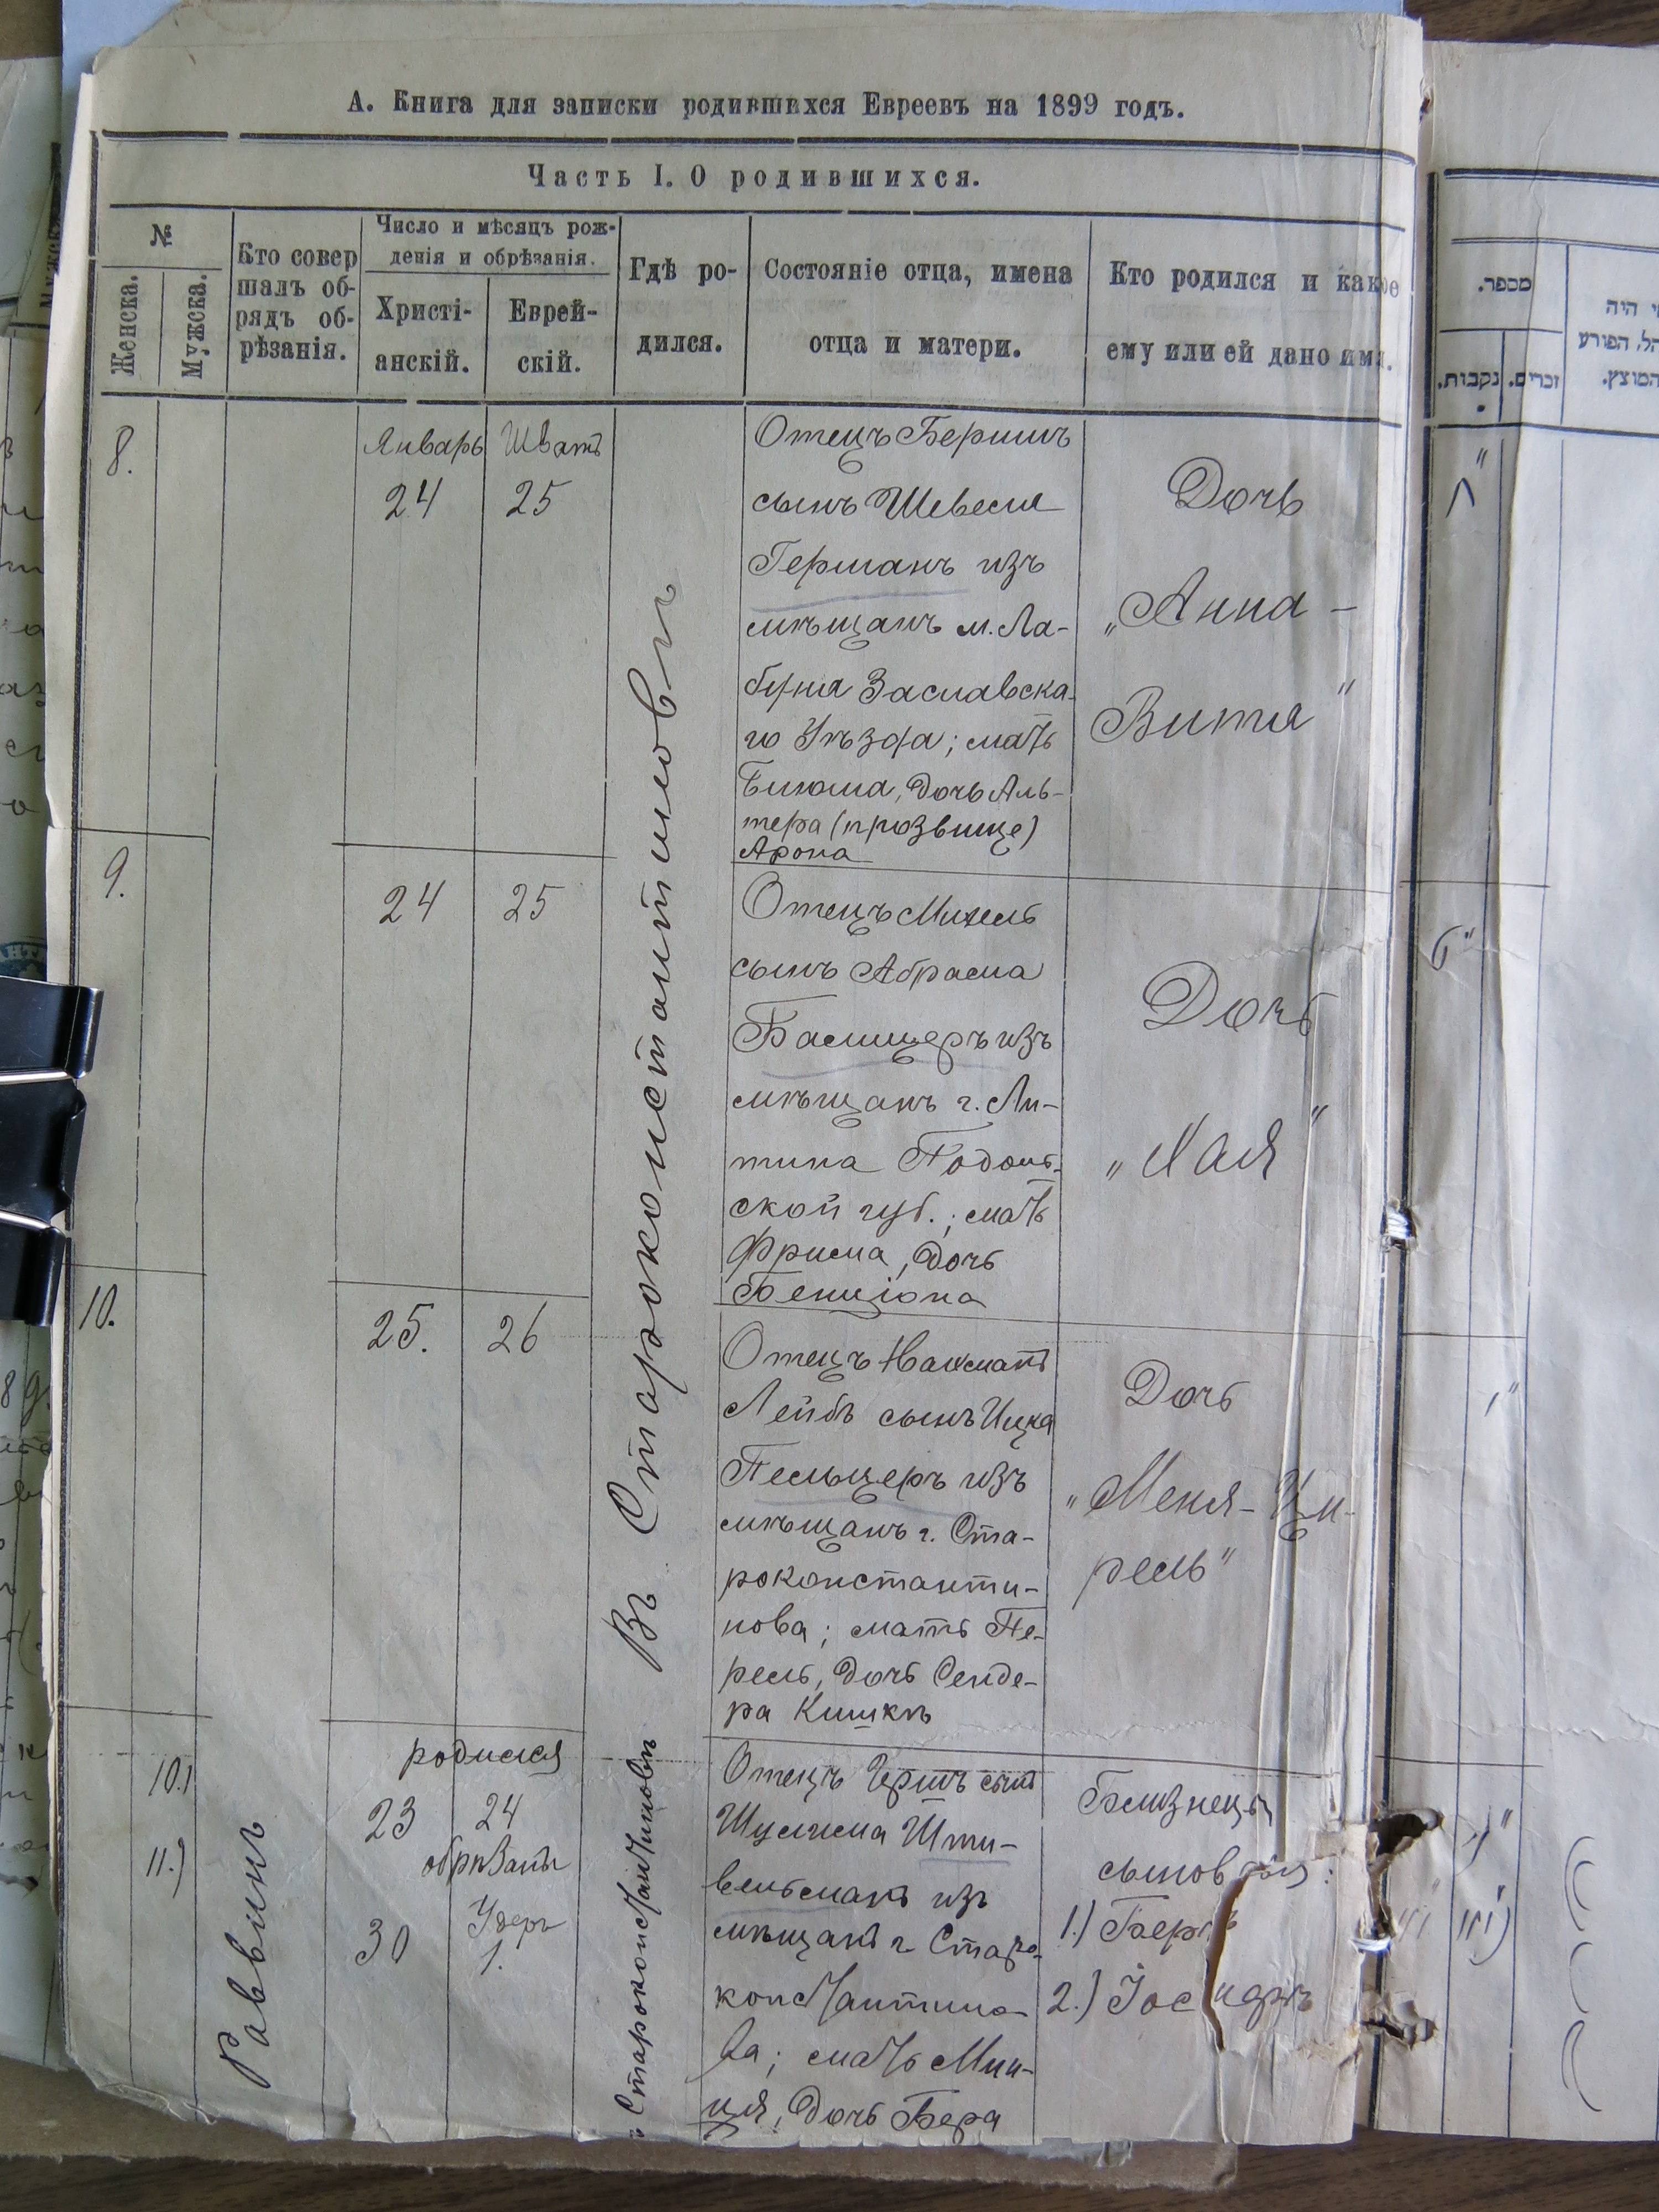 А. Книга для записки родившихся Евреевъ на 1899 годъ.
Часть I. О родившихся.
№
Женска.
Мужска.
Кто совер
шалъ об-
рядъ об-
рѣзанія.
Число и мѣсяцъ рож-
денія и обрѣзанія.
Христі-
анскій.
Еврей-
скій.
Гдѣ ро-
дился.
Состояніе отца, имена
отца и матери.
Кто родился и какое
ему или ей дано имя.
8.
Январь
24
Шватъ
25
Въ Староконстантиновѣ
Отецъ Беришъ
сынъ
Германъ изъ
мѣщанъ м. Ла-
буня Заславска-
го Уѣзда; мать
дочь Аль-
тера (прозвище)
Арона
Дочь
„Анна -
Витя"
9.
24
25
Отецъ Михель
сынъ Абрама
изъ
мѣщанъ г. Ли-
тина Подоль-
ской губ.; мать
Фрима, дочь
Бенціона
Дочь
„Хая"
10.
25.
26
Отецъ Нахманъ
Лейбъ сынъ Ицка
Пельцеръ изъ
мѣщанъ г. Ста-
роконстанти-
нова; мать Пе-
рель, дочь Сенде-
ра
Дочь
„Меня-Ци-
рель"
10.)
11.)
Раввинъ
родился
23
24
обрѣзаны
30
1.
Староконстантиновѣ
Отецъ Гершъ сынъ
Шулима Шти-
вельманъ изъ
мѣщанъ г Старо-
константино-
ва; мать Мин-
ця, дочь Бера
Близнецы
сыновья:
1.) Беръ
2.)
מספר.
נקבות.
זכרים.
היה
הפורע
המוצץ.